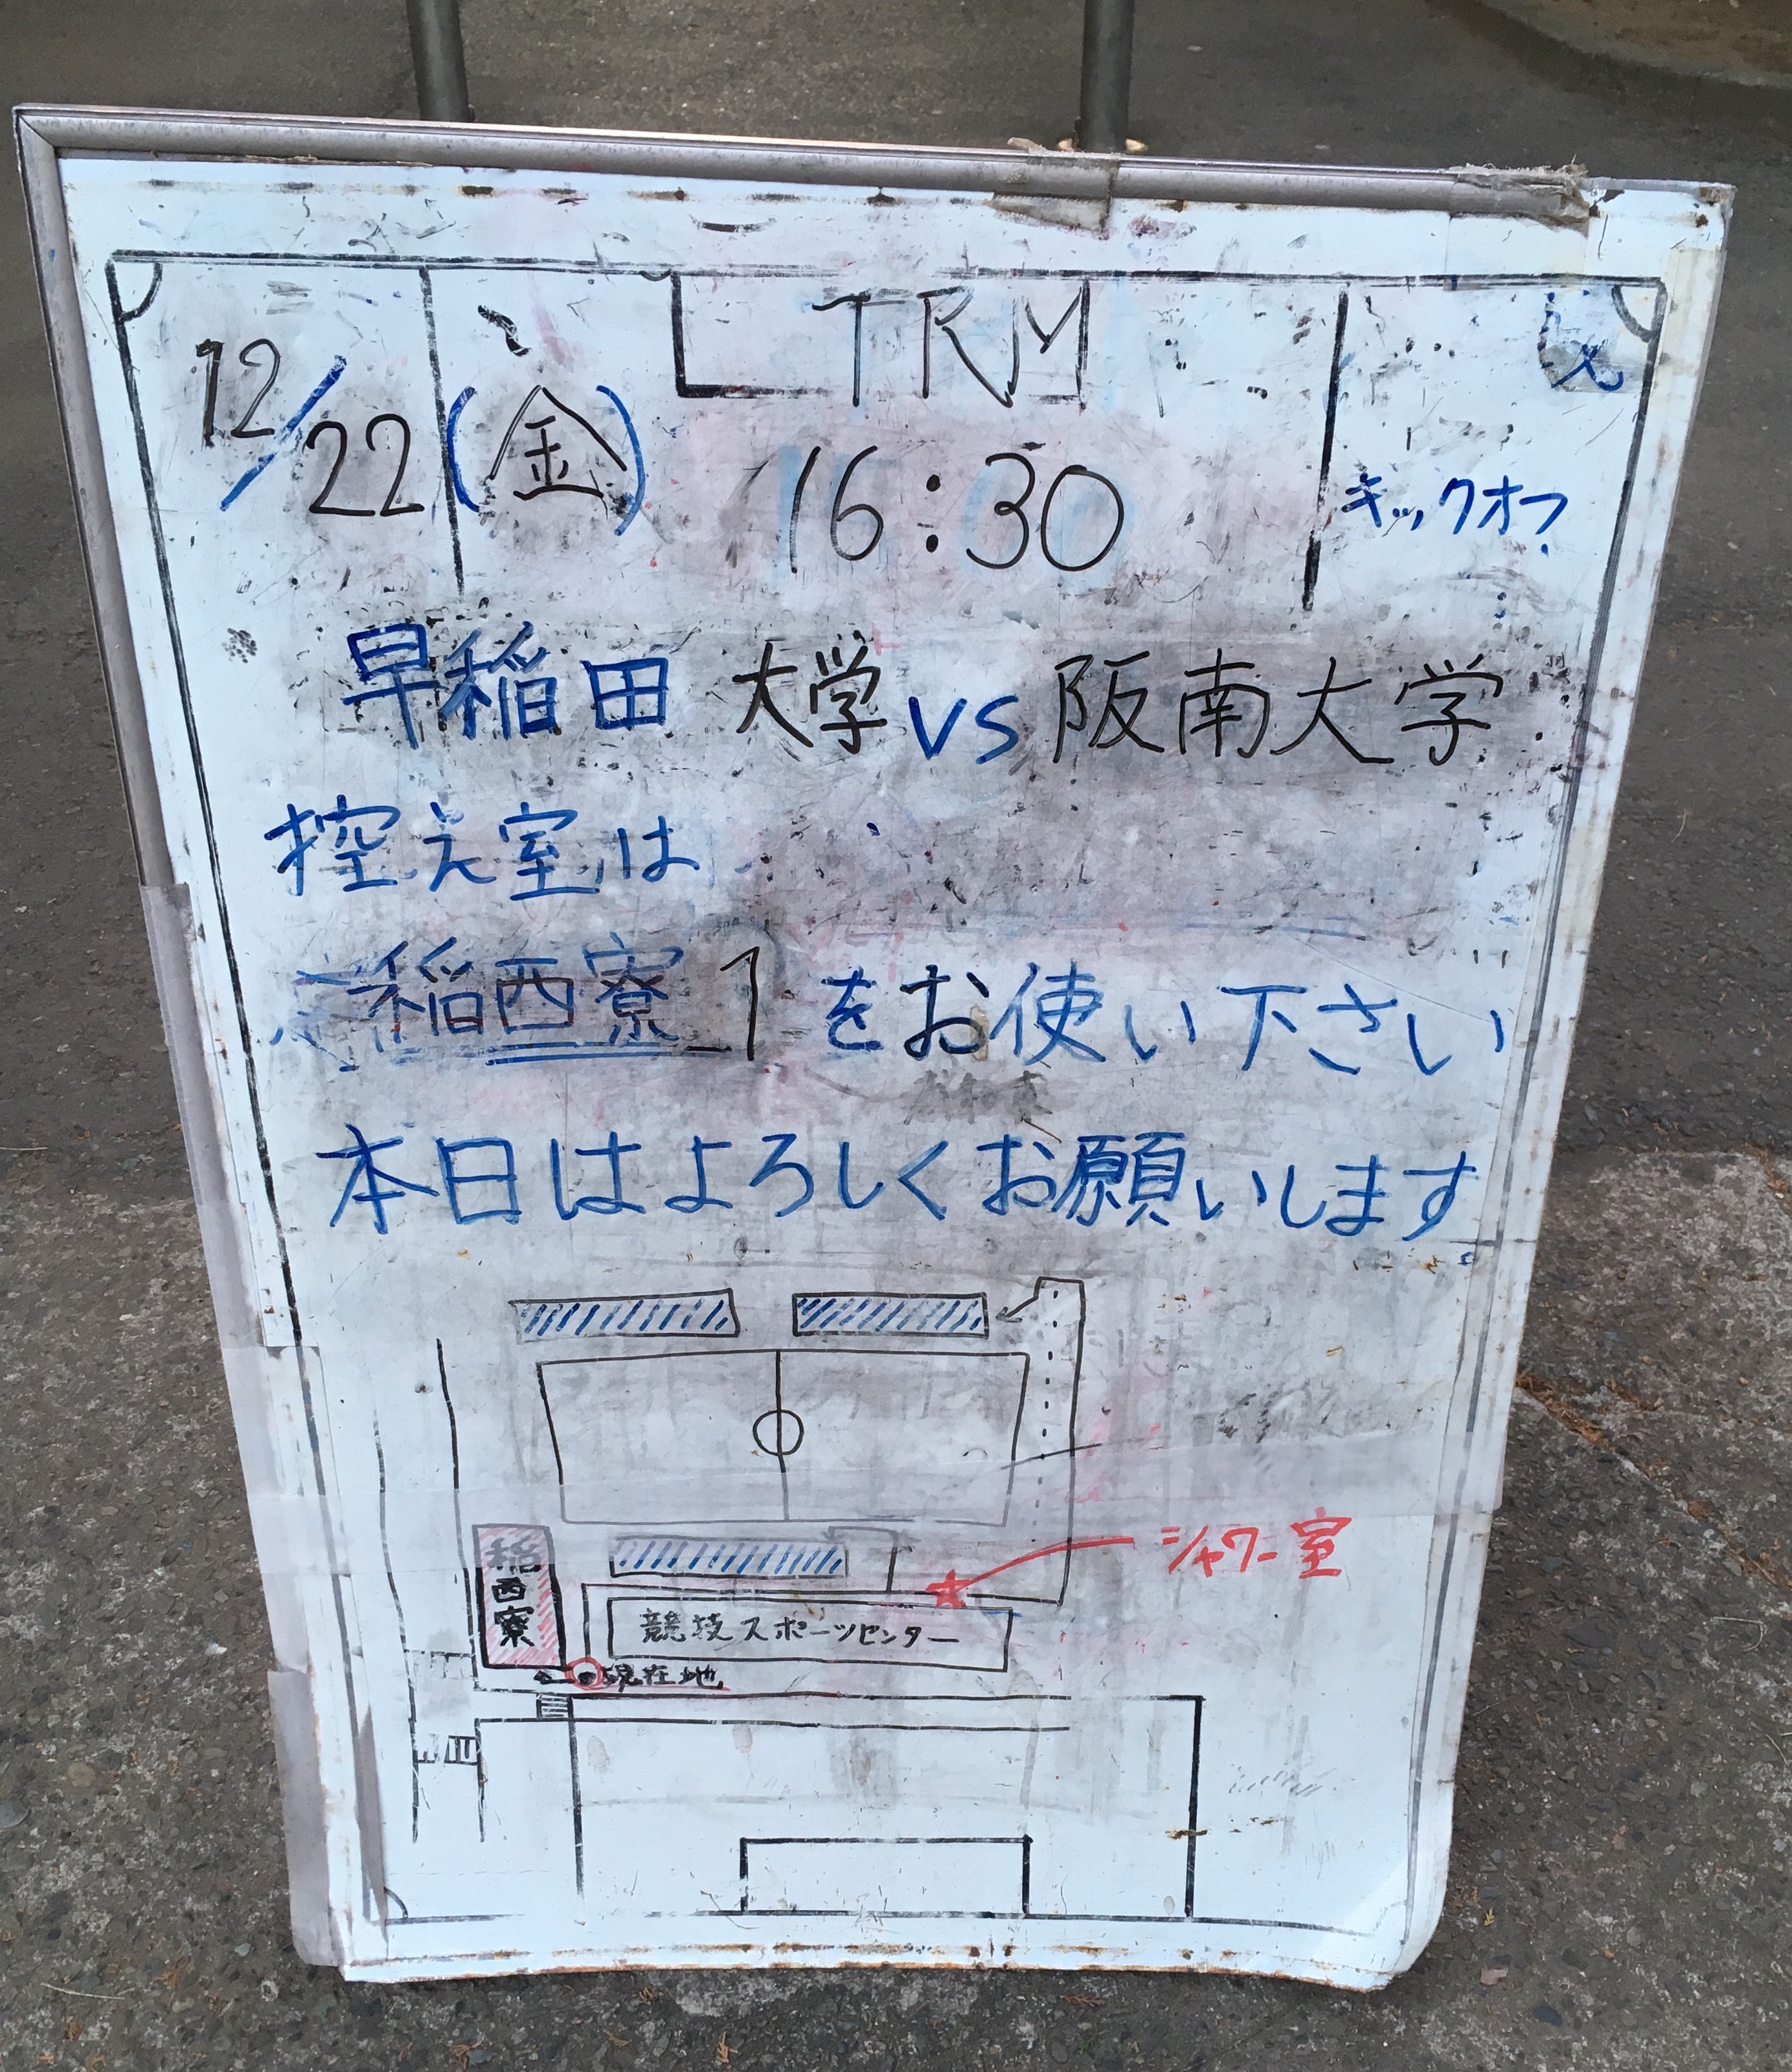 TRM
12/22(金) 16:30 キックオフ
早稲田大学 vs 阪南大学
控え室は
稲西寮1をお使い下さい
本日はよろしくお願いします
シャワー室
稲西寮
競技スポーツセンター
現在地